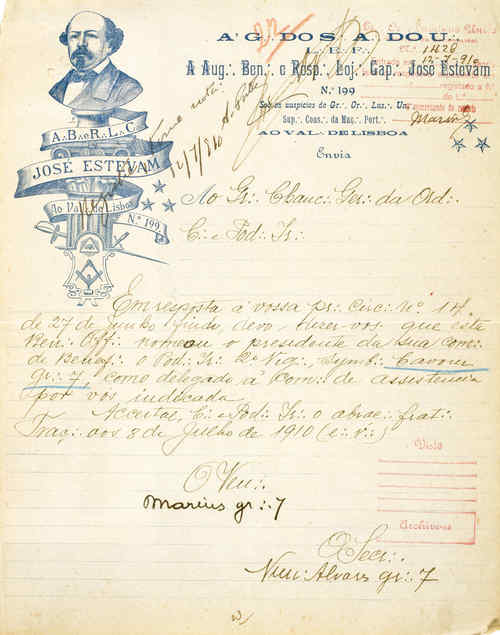 A∴ G∴ D∴ O∴ S∴ A∴ D∴ O∴ U∴
L∴ E∴ F∴
A Aug∴ Ben∴ e Resp∴ Loj∴ Cap∴ José Estevam
N.º 199
Sob os auspicios do Gr∴ Or∴ Lus∴ Un∴
Sup∴ Cons∴ da Maç∴ Port∴
AO VAL∴ DE LISBOA
Envia
22/
Nº 1428
12-7-910
A∴ B∴ R∴ L∴ C∴
JOSÉ ESTEVAM
Ao Val∴ de Lisboa
N.º 199
12/7/910
Ao Gr∴ Chanc∴ Ger∴ da Ord∴
C∴ e Pod∴ Ir∴
Em resposta á vossa pr∴ Circ∴ Nº 14
de 27 de Junho findo, devo dizer-vos que esta
Ben∴ Off∴ nomeou o presidente da sua com∴
de Benef∴ o Pod∴ Ir∴ 2º Vig∴, Symb∴ Cavour
gr∴ 7, como delegado á Com∴ de assistencia
por vos indicada.
Acceitae, C∴ e Pod∴ Ir∴ o abraç∴ frat∴
Traç∴ aos 8 de Julho de 1910 (e∴ v∴)
Visto
O Ven∴
Marius gr∴ 7
Archive-se
O Secr∴
Nun'Alvares gr∴ 7